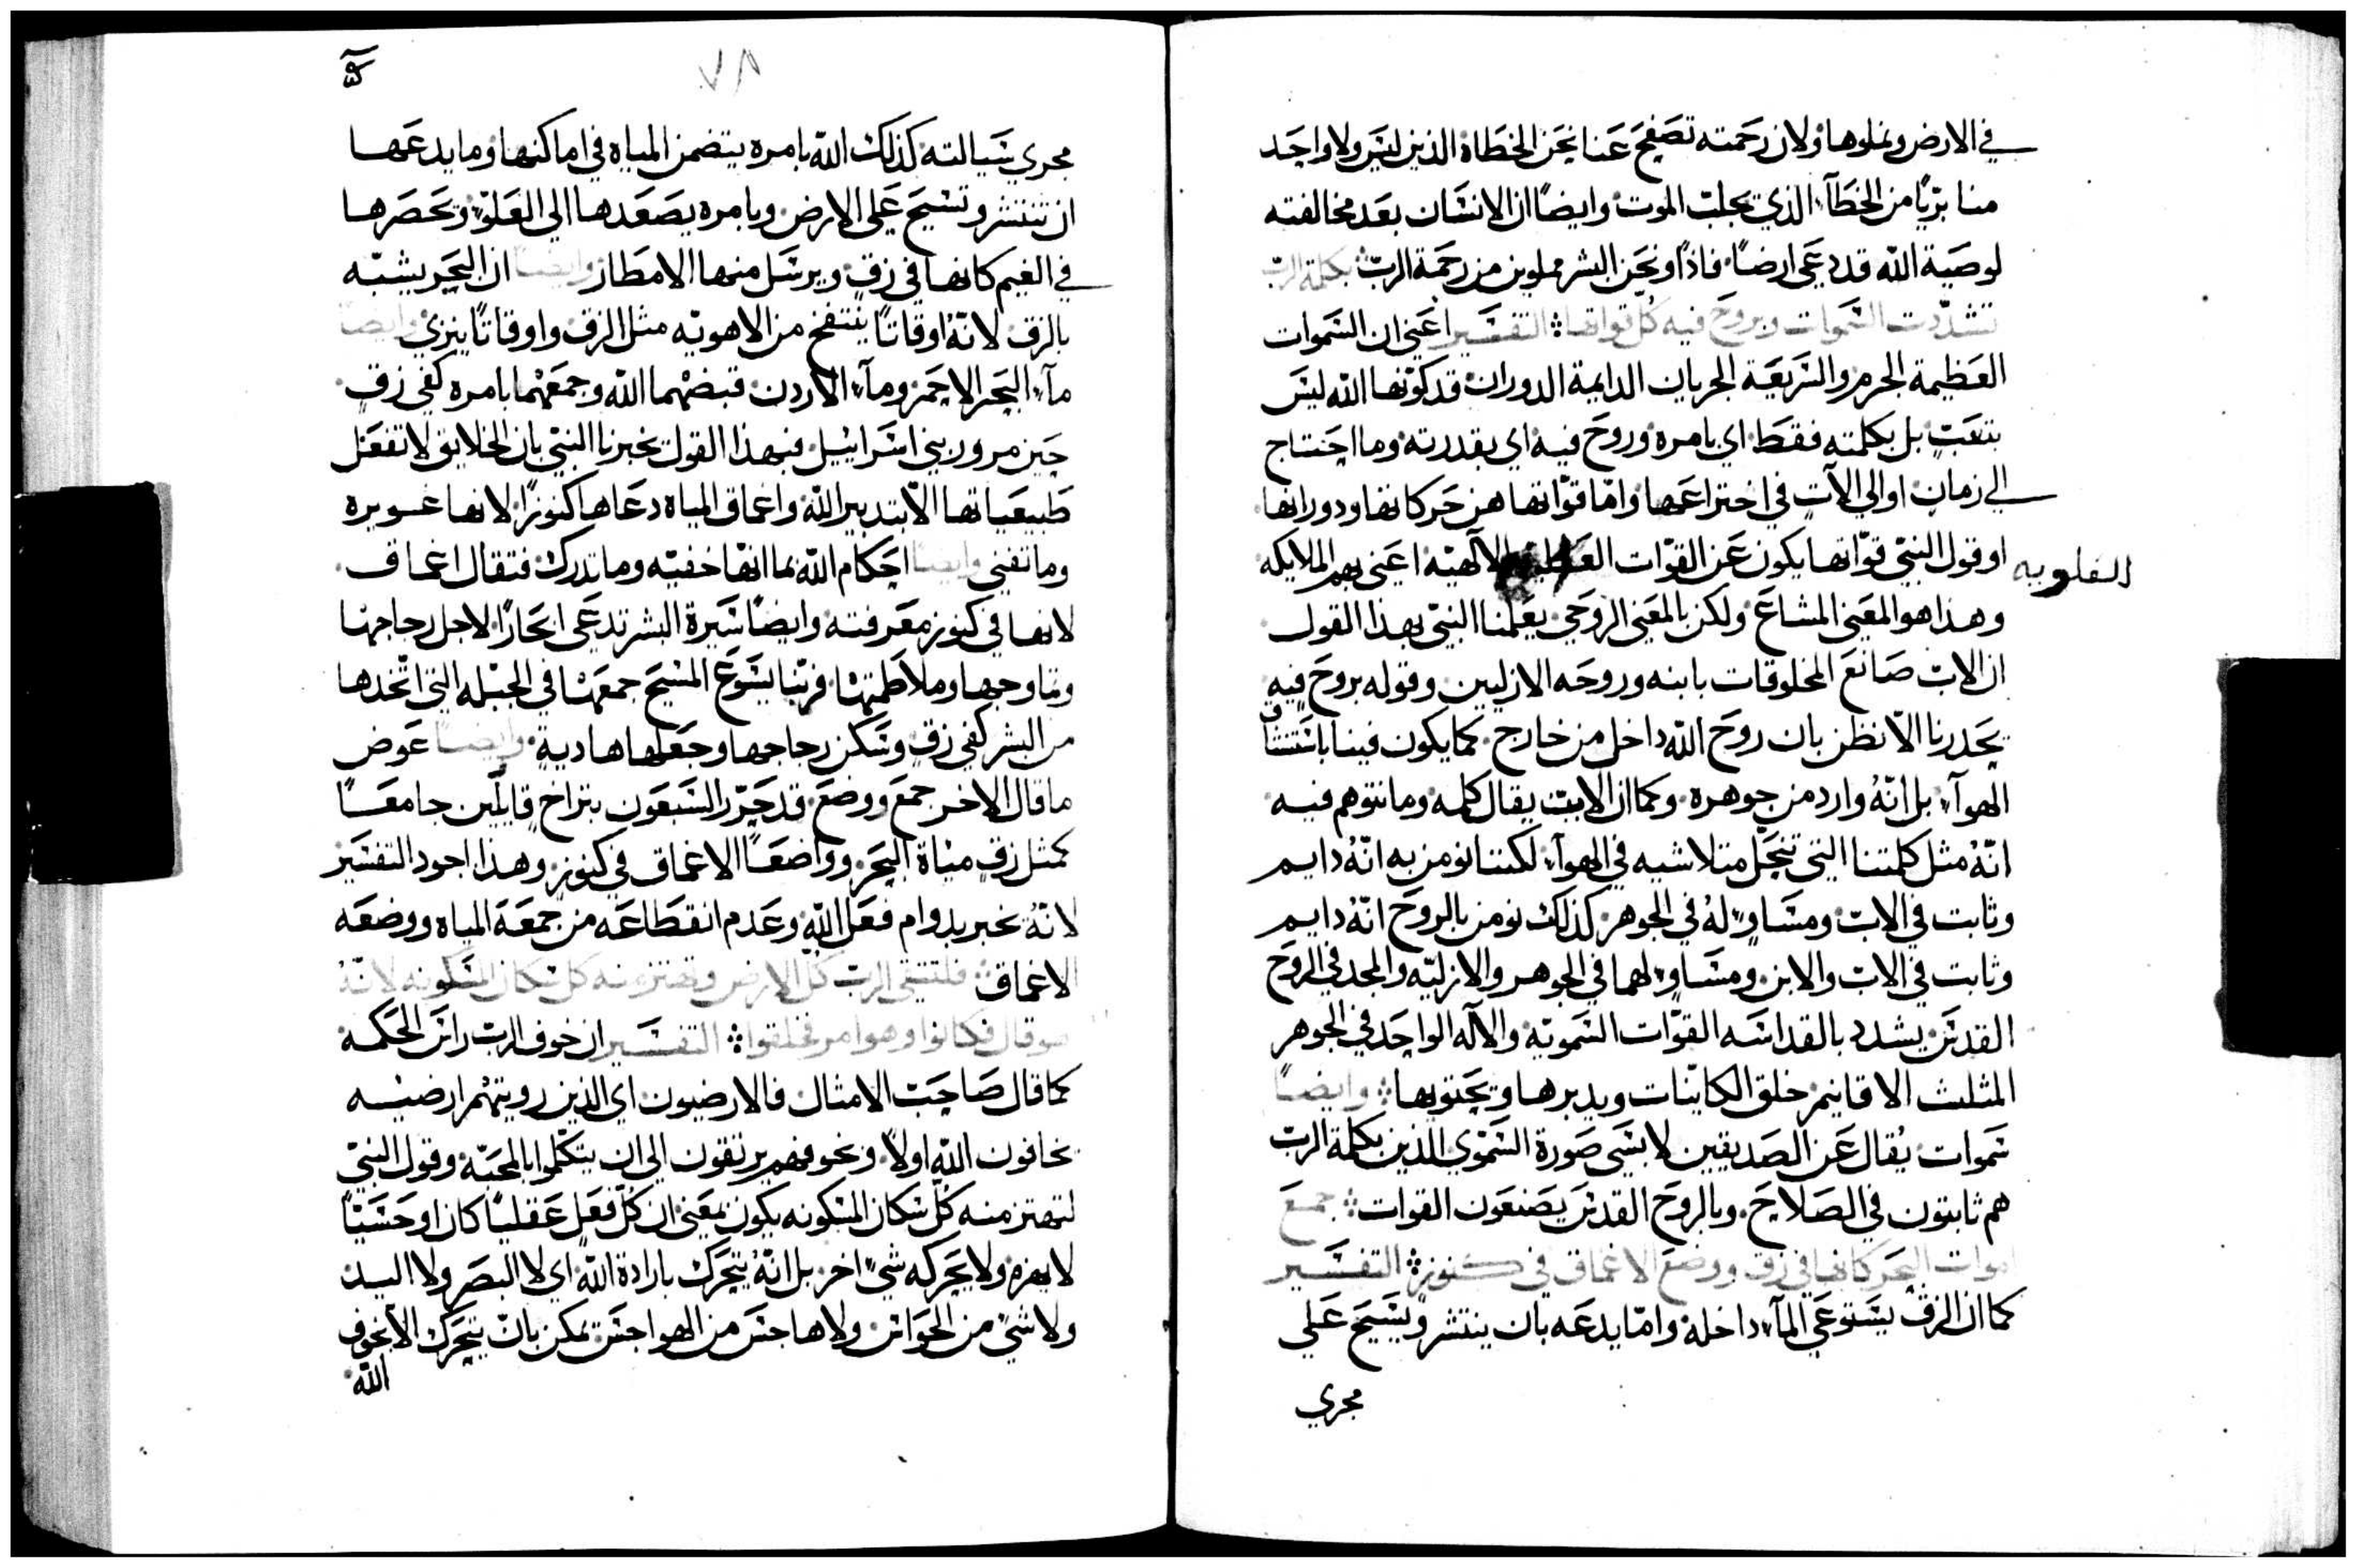 في الارض ونملوها ولان رحمته تصفح عنا نحن الخطاة الذين ليس ولا واحد
منا بريًا من الخطآء الذي تجلب الموت وايضًا ان الانسان بعد مخالفته
لوصية الله قد دعي ارضًا فاذًا ونحن البشر مملوين من رحمة الرب بكلمة الرب
تشدّدت السموات وبروح فيه كل قواتها التفسير اعني ان السموات
العظيمة الجرم والسريعة الجريان الدايمة الدوران قد كوّنها الله ليس
بتعب بل بكلمته فقط اي بامره وروح فيه اي بقدرته وما احتاج
الي زمان او الي الآت في اختراعها وامّا قوّاتها هن حركاتها ودورانها
او قول النبي قوّاتها يكون عن القوّات العقلية الالهيّه اعني بهم الملايكه
العلويه
وهذا هو المعني المشاع ولكن بالمعني الروحي يعلمنا النبي بهذا القول
ان الاب صانع المخلوقات بابنه وروحه الازليين وقوله بروح فيه
يحدرنا الّا نظن بان روح الله داخل من خارج كما يكون فينا باستنشاق
الهوآء بل انّهُ وارد من جوهره وكما ان الابن يقال كلمه وما نتوهم فيه
انّهُ مثل كلمتنا التي تنحل متلاشيه في الهوآء لكننا نومن به انّهُ دايم
وثابت في الاب ومساوٍ لهُ في الجوهر كذلك نومن بالروح انّهُ دايم
وثابت في الاب والابن ومساوٍ لهما في الجوهر والازليّه والمجد في الروح
القدس يشدد بالقداسه القوّات السمويّه والآله الواحد في الجوهر
المثلث الاقانيم خلق الكاينات ويدبرها ويحتويها وايضًا
سموات يُقال عن الصديقين لابسي صورة السموي الذين بكلمة الرب
هم ثابتون في الصلاح وبالروح القدس يصنعون القوات جمع
امواة البحر كانها في زق ووضع الاعماق في كنوز التفسير
كما ان الزق يستوعي المآء داخله وامّا يدعه بان ينتشر ويسيح علي
مجري
٧٨
مجري سيالته كذلك الله بامره يتضمن المياه في اماكنها وما يدعها
ان تنتشر وتسيح علي الارض وبامره يصعدها الي العلوّ وتحصرها
في الغيم كانها في زق ويرسل منها الامطار وايضًا ان البحر يشبّه
بالزق لانّهُ اوقاتًا ينتفخ من الاهويه مثل الزق واوقاتًا ينزي وايضًا
مآء البحر الاحمر ومآء الاردن قبضهما الله وجمعهما بامره كفي زق
حين مرور بني اسراييل فبهذا القول يخبرنا النبي بان الخلايق لا تفعل
طبيعياتها الّا بتدبير الله واعماق المياه دعاها كنوزًا لانها غويره
وما تفني وايضًا احكام الله بما انّها خفيّه وما تدرك فتقال اعماق
لانها في كنوز معرفته وايضًا سيرة البشر تدعي ابحارًا لاجل رجاجها
وتماوجها وملاطمتها فربّنا يسوع المسيح جمعها في الجبله التي اتّخدها
من البشر كفي زق وسكن رجاجها وجعلها هادية وايضًا عوض
ما قال الاخر جمع ووضع قد حرّر السبعون بتراخ قايلين جامعًا
كمثل زق مياة البحر وواضعًا الاعماق في كنوز وهذا اجود التفسير
لانّهُ يخبر بدوام فعل الله وعدم انقطاعه من جمعة المياه ووضعه
الاعماق فلتتقي الرب كل الارض وتهتز منه كل سكان المسكونه لانّهُ
هو قال فكانوا وهو امر فخلقوا التفسير ان خوف الرب راس الحكمه
كما قال صاحب الامثال فالارضيون اي الذين رويتهم ارضيه
يخافون الله اولًا وبخوفهم يرتقون الي ان يتكلّموا بالمحبّه وقول النبي
لتهتز منه كلّ سكان المسكونه يكون بمعني ان كلّ فعل عقليًا كان او حسيًّا
لا يهزه ولا يحركه شيٌ اخر بل انّهُ يتحرك بارادة الله اي لا البصر ولا اليد
ولا شيٌ من الحواس ولا هاجس من الهواجس يمكن بان يتحرك الا بخوف
الله